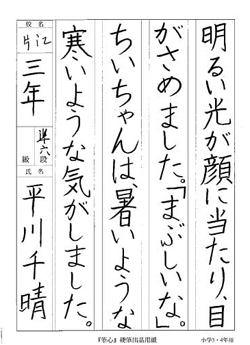 明るい光が顔に当たり、目
がさめました。「まぶしいな。」
ちいちゃんは、暑いような
寒いような気がしました。
校名
片江
三年
準六
段
級
氏名
平川千晴
『筆心』硬筆出品用紙
小学3・4年用